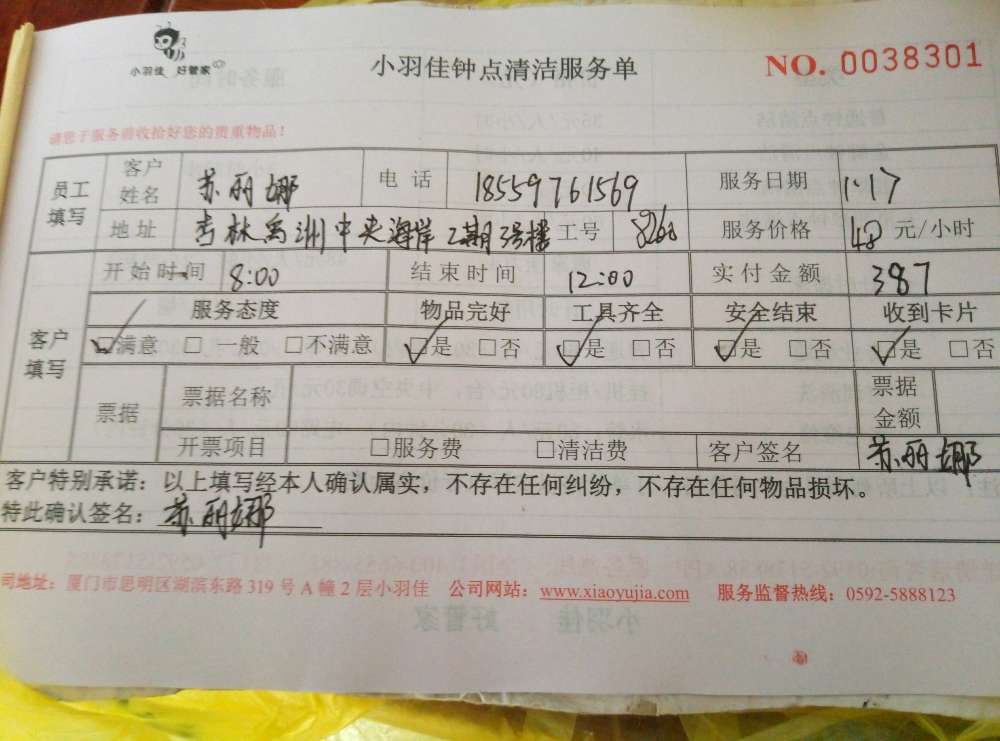 小羽佳 好管家
小羽佳钟点清洁服务单
NO. 0038301
请您于服务前收拾好您的贵重物品！
员工填写 客户姓名 苏丽娜 电话 18559761569 服务日期 1.17
地址 杏林禹洲中央海岸2期3号楼 工号 8260 服务价格 48 元/小时
客户填写 开始时间 8:00 结束时间 12:00 实付金额 387
服务态度 物品完好 工具齐全 安全结束 收到卡片
☑满意 □一般 □不满意 ☑是 □否 ☑是 □否 ☑是 □否 ☑是 □否
票据 票据名称 票据金额
开票项目 □服务费 □清洁费 客户签名 苏丽娜
客户特别承诺：以上填写经本人确认属实，不存在任何纠纷，不存在任何物品损坏。
特此确认签名：苏丽娜
司地址：厦门市思明区湖滨东路 319 号 A 幢 2 层小羽佳 公司网站：www.xiaoyujia.com 服务监督热线：0592-5888123